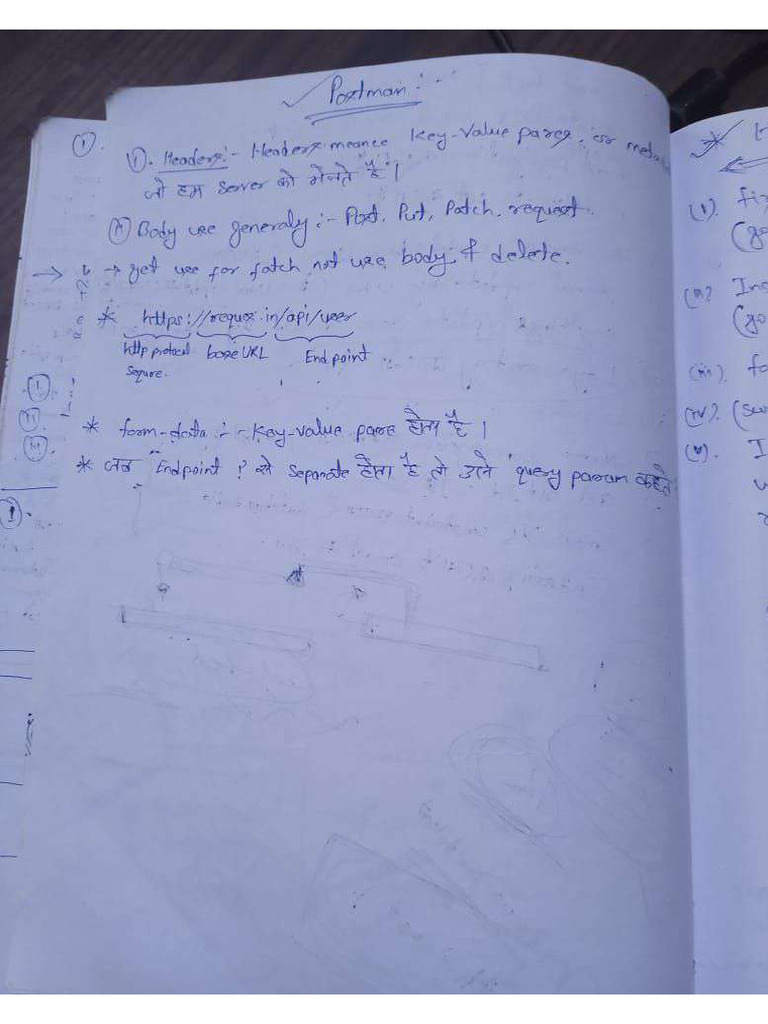 Postman :-
(1).
(i). Headers :- Headers meance Key-Value pares, or meta
जो हम server को भेजते है।
(ii) Body use generaly :- Post, Put, Patch, request.
→ get use for fatch not use body & delete.
* https://reques.in/api/user
http protocal base URL End point
sequre.
* form-data :- Key-value pare होता है।
* जब Endpoint ? से Separate होता है तो उसे query param कहते
(i)
(ii)
(iii)
(1).
*
(i). fi
(go
(ii) Ins
(go
(iii). fo
(iv). (sw
(v). I